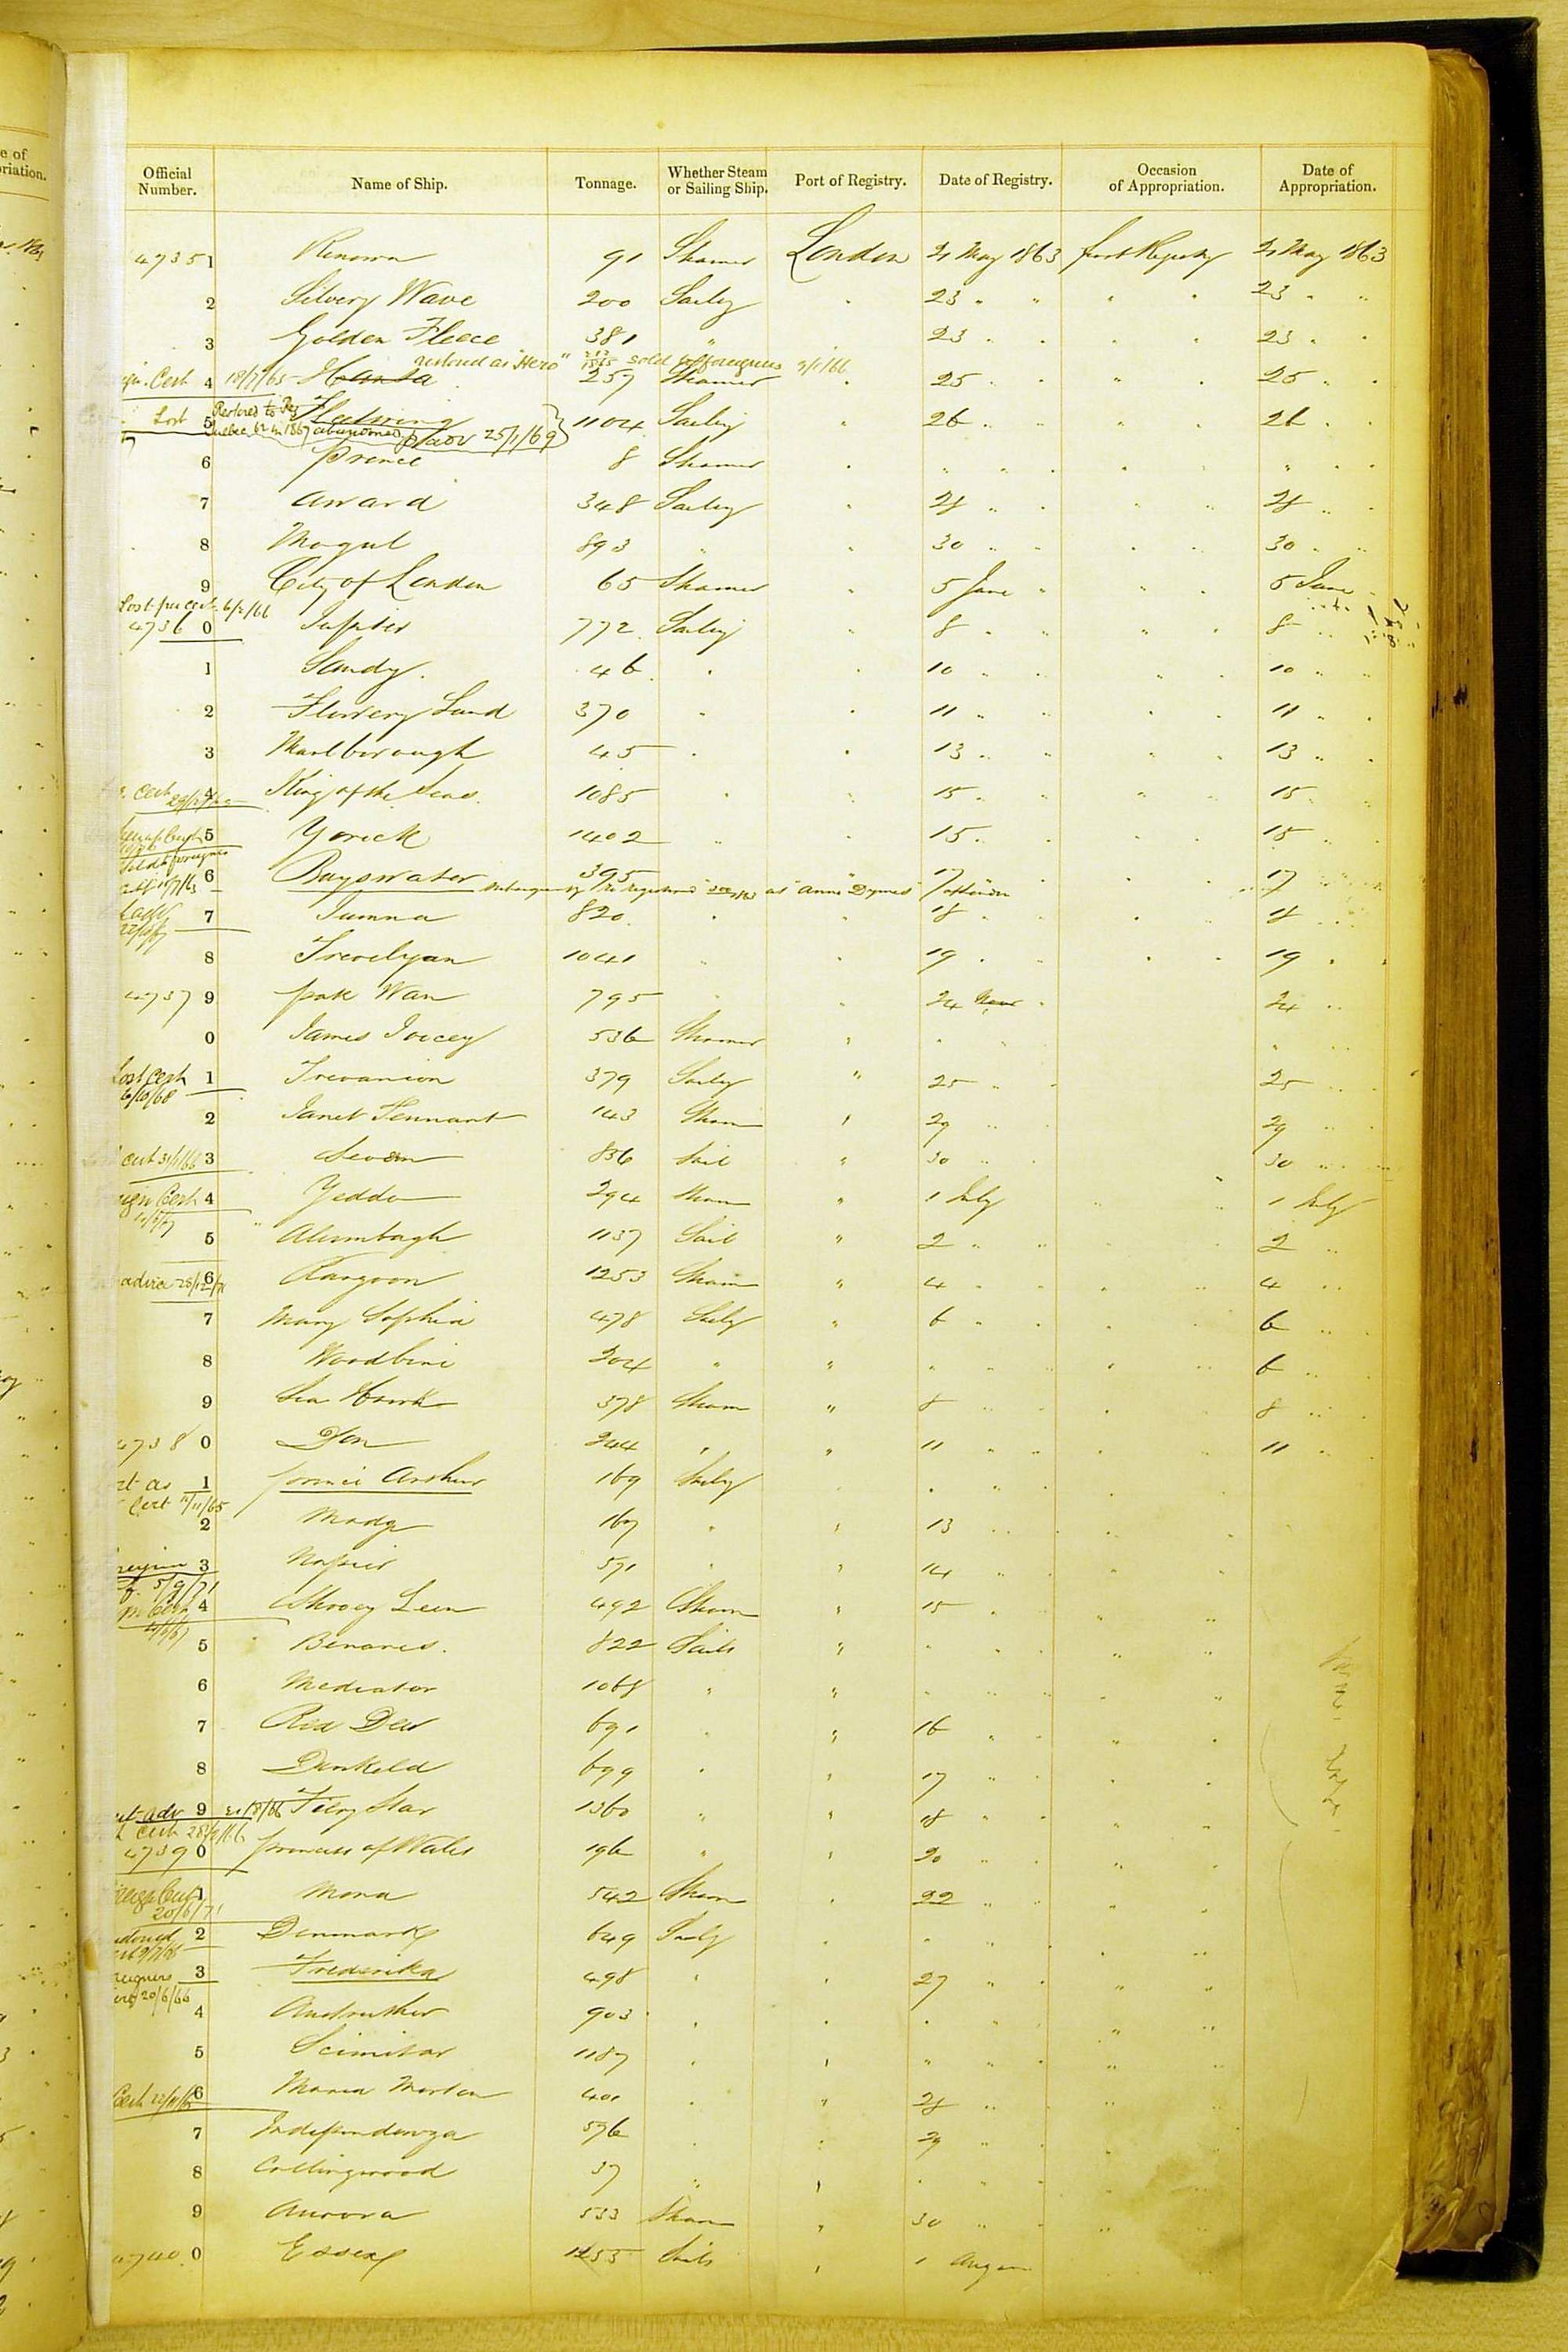 Official Number. Name of Ship. Tonnage. Whether Steam or Sailing Ship. Port of Registry. Date of Registry. Occasion of Appropriation. Date of Appropriation.
47351 Renown 91 Steamer London 21 May 1863 first Registry 21 May 1863
2 Silvery Wave 200 Sailg " 23 " " " " 23 " "
3 Golden Fleece 381 " 23 " " 23 " "
restored as "Hero" sold to foreigners 3/1/66
Cert 4 18/7/65 Hansa 257 Steamer " 25 " " " " 25 " "
Lost 5 Restored to Reg Quebec 62 in 1867 abandoned 25/1/69 Fleetwing 1104 Sailg " 26 " " " " 26 " "
6 Prince 8 Steamer " " " " " " " " "
7 Award 348 Sailg " 28 " " " " 28 " "
8 Mogul 893 " " 30 " " " " 30 " "
9 City of London 65 Steamer " 5 June " " " 5 June "
Lost per cert 6/2/66
4736 0 Jupiter 772 Sailg " 8 " " " " 8 " "
1 Sandy 46 " " 10 " " " " 10 " "
2 Flowery Land 370 " " 11 " " " " 11 " "
3 Marlborough 45 " " 13 " " " " 13 " "
Cert 4 King of the Seas 1085 " " 15 " " " " 15 " "
5 Yorick 1402 " " 15 " " " " 15 " "
Sold foreigners
6 Bayswater 395 " " 17 " " 17
subsequently re registered as "Anne Dymes"
7 Jumna 820 " " 18 " " " 18 " "
8 Trevelyan 1041 " " 19 " " " " 19 " "
4737 9 Pak Wan 795 " " 24 " 24 " "
0 James Joicey 536 Steamer " " " " " "
Lost Cert 6/10/68 1 Trevanion 379 Sailg " 25 " " 25 " "
2 Janet Tennant 143 Steam " 29 " " 29 " "
cert 31/1/66 3 Severn 836 Sail " 30 " " 30 " "
Cert 4 Yeddo 294 Steam " 1 July " " 1 July
5 Alumbagh 1137 Sail " 2 " " 2 "
advice 28/12/71 6 Rangoon 1253 Steam " 4 " " " " 4 " "
7 Mary Sophia 478 Sailg " 6 " " " " 6 " "
8 Woodbine 204 " " " " " " " 6 " "
9 Sea Hawk 378 Steam " 8 " " " 8 " "
4738 0 Don 244 " " 11 " " " " 11 "
Cert 11/11/65 1 Prince Arthur 169 Sailg " " " " "
2 Madge 167 " " 13 " " " "
5/9/71 3 Napier 571 " " 14 " " " "
Cert 4 Shooey Leen 492 Steam " 15 " " "
5 Benares 822 Sails " " " " "
6 Mediator 1068 " " " " " " "
7 Red Deer 691 " " 16 " " " "
8 Dunkeld 699 " " 17 " " " "
adv 9 21/8/66 Fiery Star 1360 " " 18 " " "
Cert 28/8/66
4739 0 Princess of Wales 196 " " 20 " " " "
20/6/71 1 Mona 542 Steam " 22 " " " "
2 Denmark 649 Sailg " " " " " "
foreigners 20/6/66 3 Frederika 498 " " 27 " " " "
4 Anstruther 903 " " " " " " "
5 Scimitar 1187 " " " " " " "
Cert 6 Maria Morton 401 " " 28 " " " "
7 Independenza 576 " " 29 " " " "
8 Collingwood 37 " " " " " " "
9 Aurora 533 Steam " 30 " " " "
4740 0 Essex 1255 Sails " 1 August